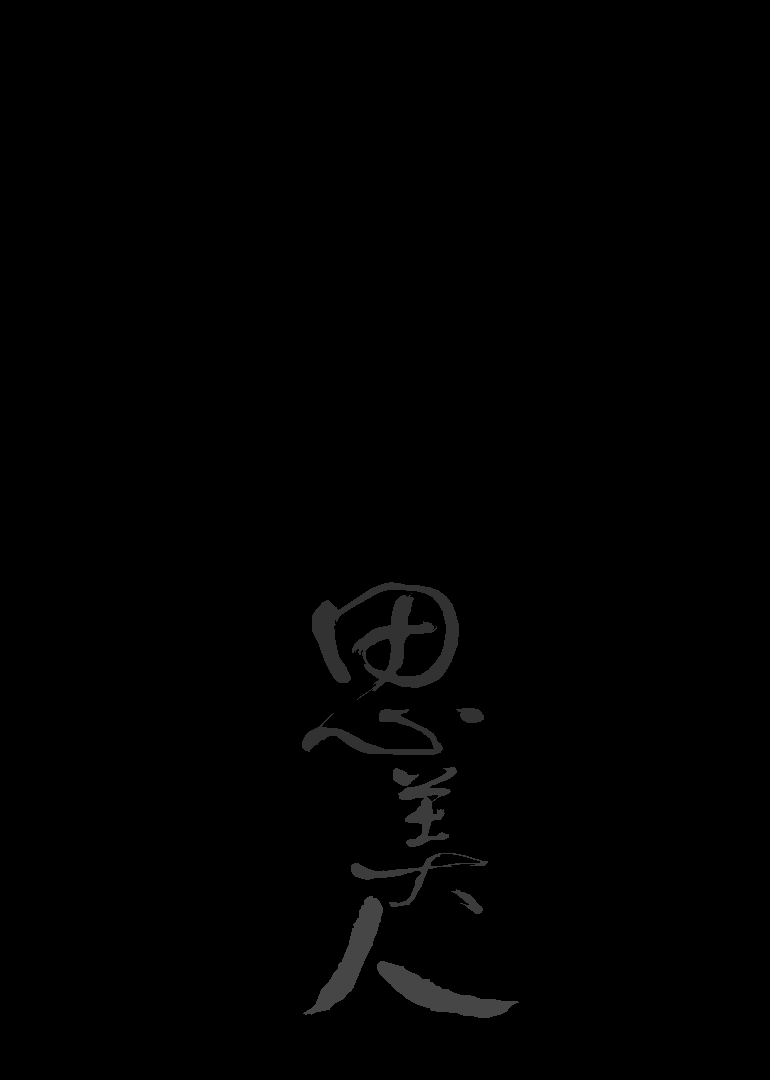 思美人